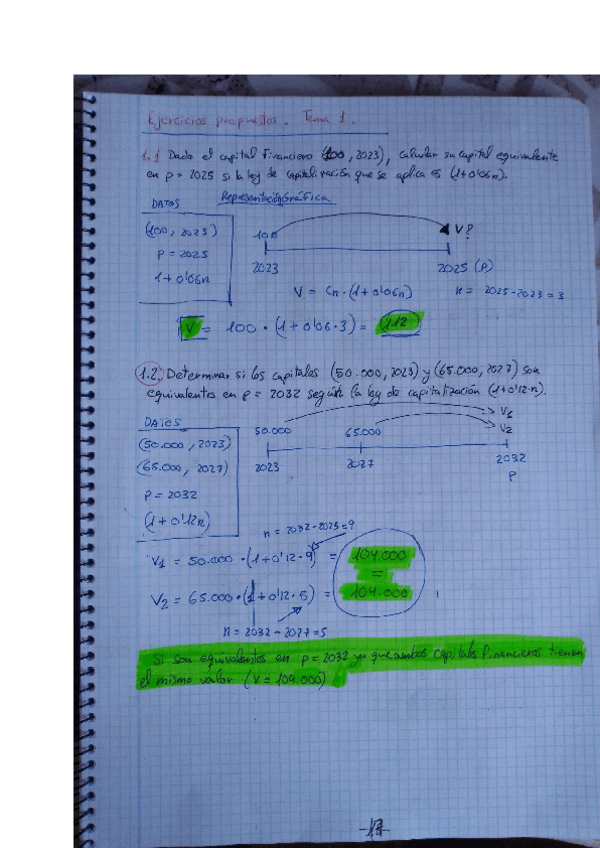 Ejercicios propuestos. Tema 1.
1.1 Dado el capital financiero (100, 2023), calcular su capital equivalente
en p = 2025 si la ley de capitalización que se aplica es (1+0'06n).
DATOS
Representación Gráfica
(100, 2023)
p = 2025
1+0'06n
V?
2023
2025 (p)
V = Cn·(1+0'06n)
n = 2025-2023 = 3
V = 100 · (1+0'06·3) = 112
1.2. Determinar si los capitales (50.000, 2023) y (65.000, 2027) son
equivalentes en p = 2032 según la ley de capitalización (1+0'12·n).
DATOS
(50.000, 2023)
(65.000, 2027)
p = 2032
(1+0'12n)
50.000
65.000
V1
V2
2023
2027
2032
p
n = 2032-2023 = 9
V1 = 50.000 · (1+0'12·9) = 104.000
=
V2 = 65.000 · (1+0'12·5) = 104.000
n = 2032-2027 = 5
Si son equivalentes en p = 2032 ya que ambos capitales financieros tienen
el mismo valor (V = 104.000)